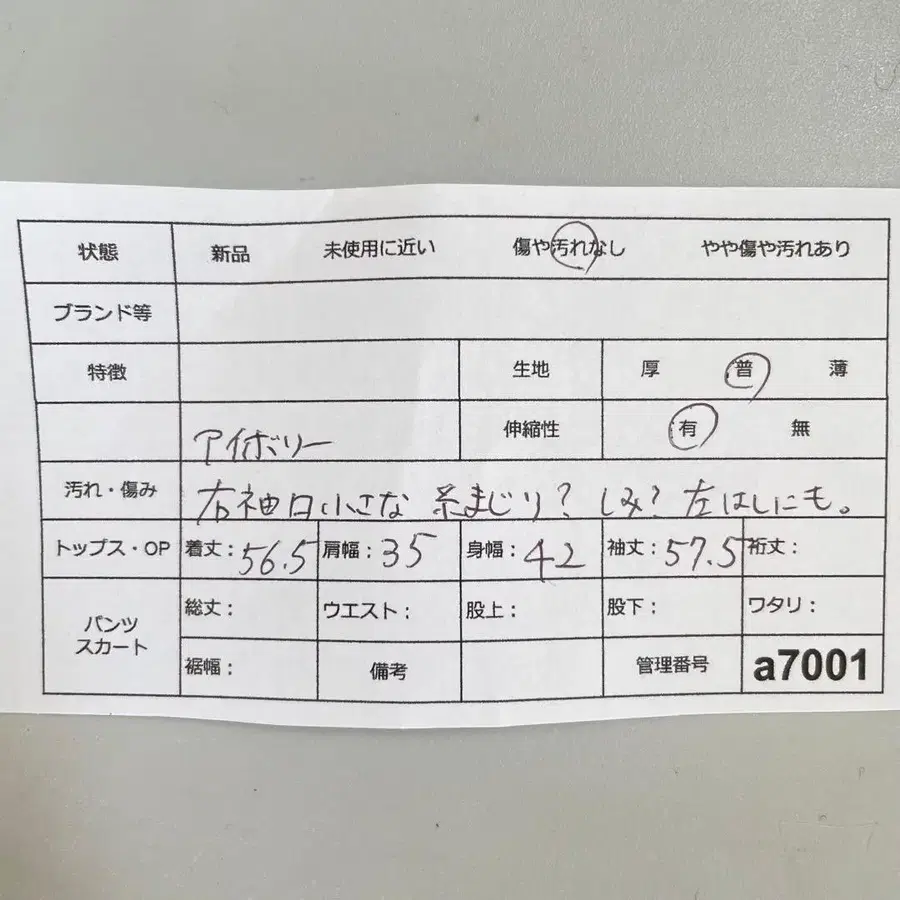 状態 新品 未使用に近い 傷や汚れなし やや傷や汚れあり
ブランド等
特徴 生地 厚 普 薄
アイボリー 伸縮性 有 無
汚れ・傷み 右袖口小さな 糸まじり? しみ? 左はしにも。
トップス・OP 着丈:56.5 肩幅:35 身幅:42 袖丈:57.5 裄丈:
パンツ スカート 総丈: ウエスト: 股上: 股下: ワタリ:
裾幅: 備考 管理番号 a7001